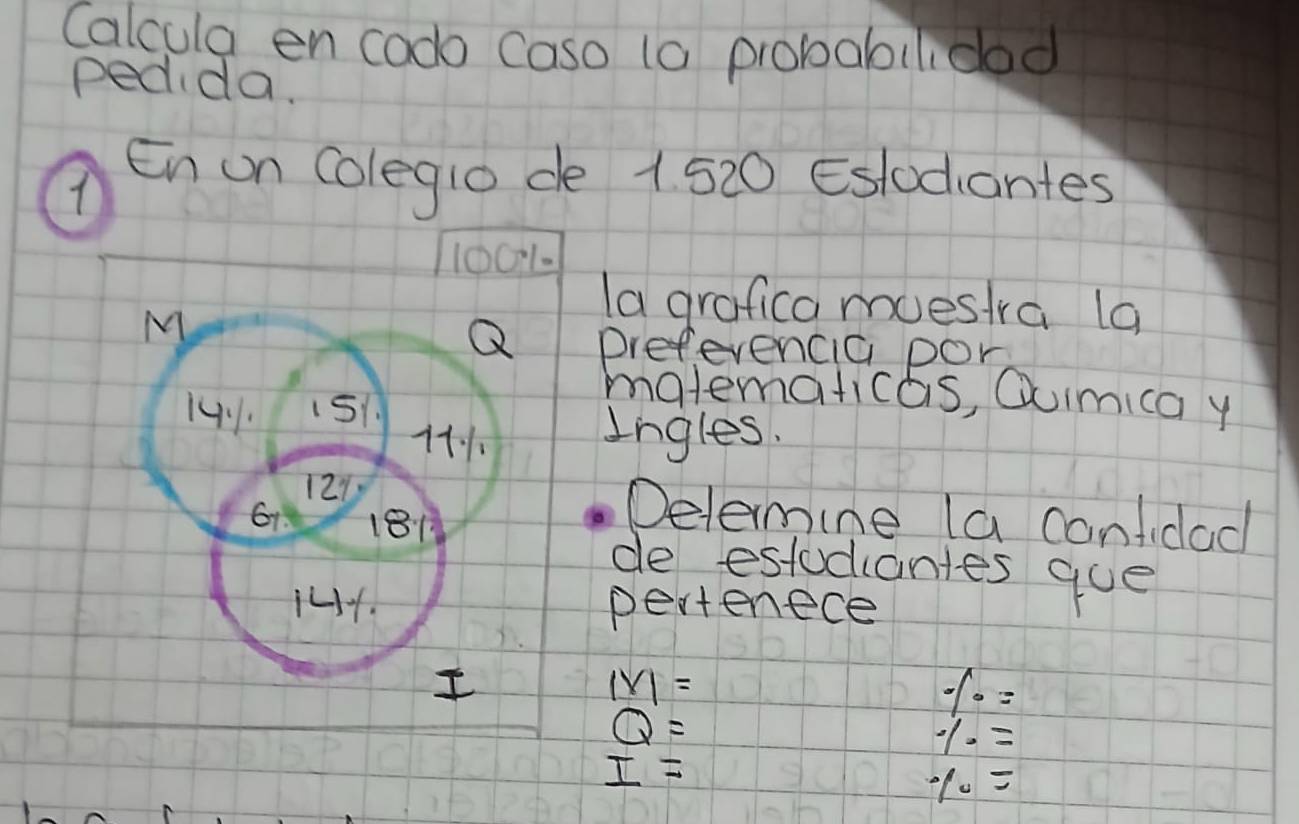 Calcula en cada caso la probabilidad
pedida.
1 En un colegio de 1.520 Estudiantes
100%
la grafica muestra la
M Q
preferencia por
matematicas, Quimica y
14% 15% 11%
Ingles.
12%
6% 18%
• Determine la cantidad
de estudiantes que
14%
pertenece
I
M = % =
Q = % =
I = % =